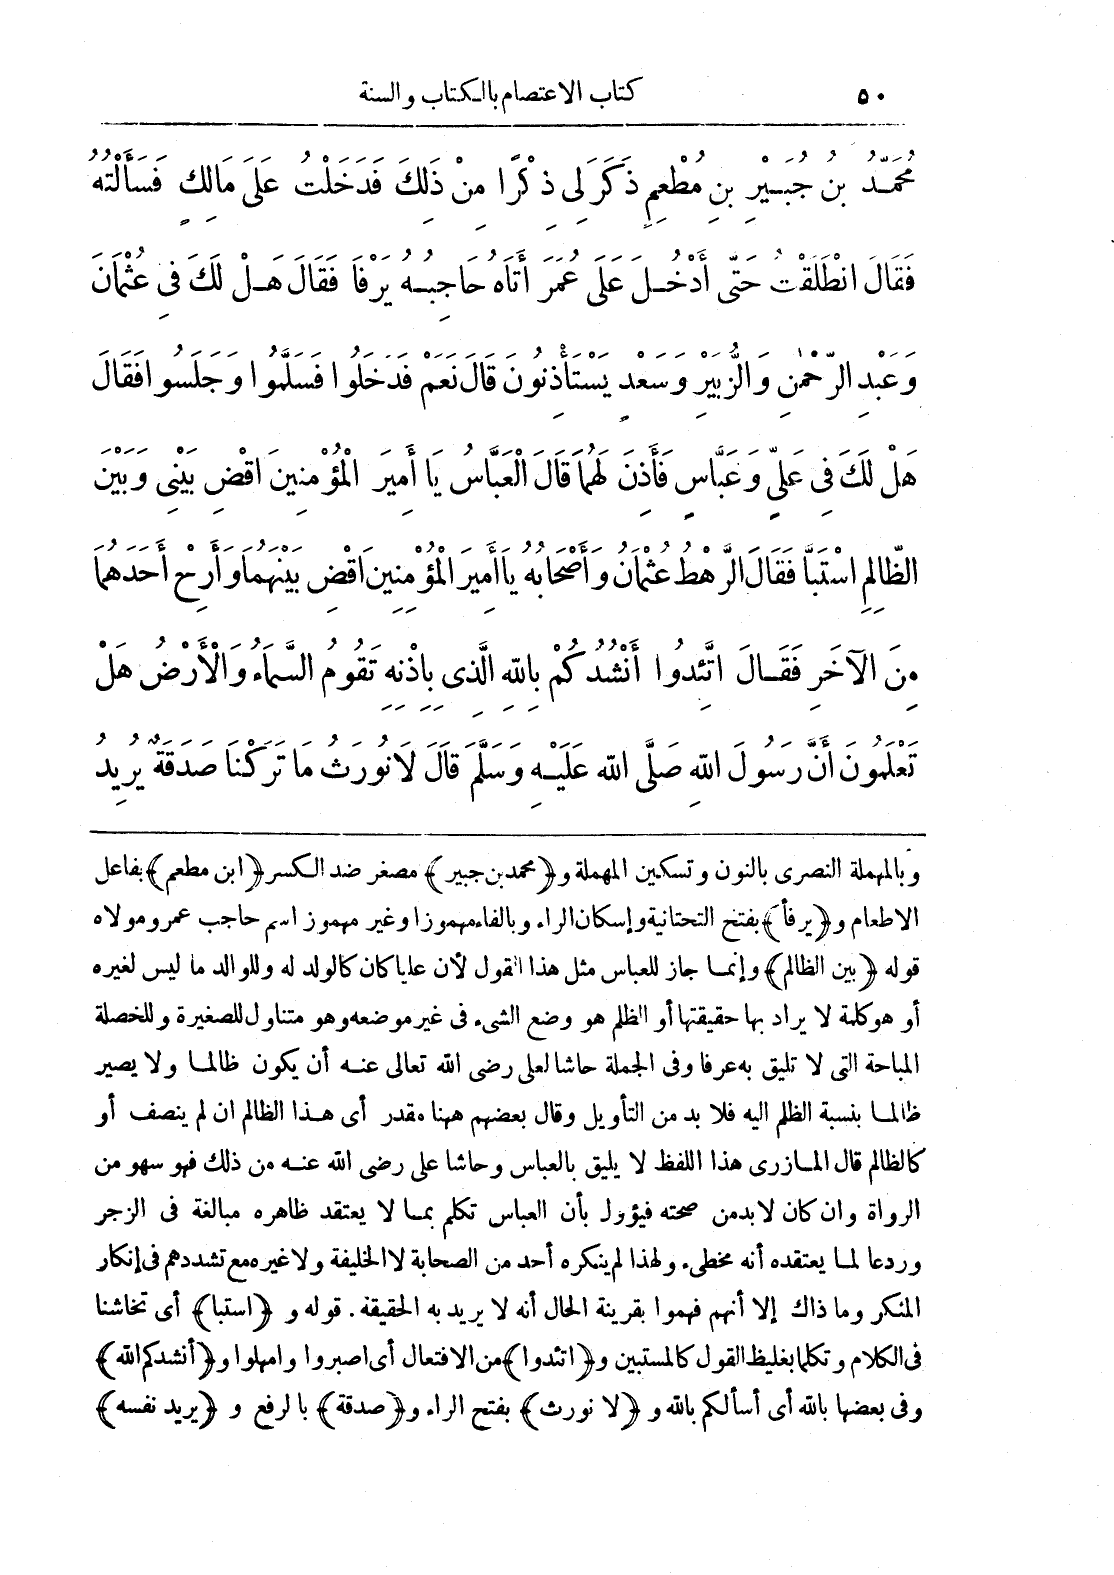 ٥٠ كتاب الاعتصام بالكتاب والسنة
مُحَمَّدُ بْنُ جُبَيْرِ بْنِ مُطْعِمٍ ذَكَرَ لِي ذِكْرًا مِنْ ذَلِكَ فَدَخَلْتُ عَلَى مَالِكٍ فَسَأَلْتُهُ
فَقَالَ انْطَلَقْتُ حَتَّى أَدْخُلَ عَلَى عُمَرَ أَتَاهُ حَاجِبُهُ يَرْفَا فَقَالَ هَلْ لَكَ فِي عُثْمَانَ
وَعَبْدِ الرَّحْمٰنِ وَالزُّبَيْرِ وَسَعْدٍ يَسْتَأْذِنُونَ قَالَ نَعَمْ فَدَخَلُوا فَسَلَّمُوا وَجَلَسُوا فَقَالَ
هَلْ لَكَ فِي عَلِيٍّ وَعَبَّاسٍ فَأَذِنَ لَهُمَا قَالَ الْعَبَّاسُ يَا أَمِيرَ الْمُؤْمِنِينَ اقْضِ بَيْنِي وَبَيْنَ
الظَّالِمِ اسْتَبَّا فَقَالَ الرَّهْطُ عُثْمَانُ وَأَصْحَابُهُ يَا أَمِيرَ الْمُؤْمِنِينَ اقْضِ بَيْنَهُمَا وَأَرِحْ أَحَدَهُمَا
مِنَ الْآخَرِ فَقَالَ اتَّئِدُوا أَنْشُدُكُمْ بِاللهِ الَّذِي بِإِذْنِهِ تَقُومُ السَّمَاءُ وَالْأَرْضُ هَلْ
تَعْلَمُونَ أَنَّ رَسُولَ اللهِ صَلَّى اللهُ عَلَيْهِ وَسَلَّمَ قَالَ لَا نُورَثُ مَا تَرَكْنَا صَدَقَةٌ يُرِيدُ
وبالمهملة النصرى بالنون وتسكين المهملة و﴿محمد بن جبير﴾ مصغر ضد الكسر ﴿ابن مطعم﴾ بفاعل
الاطعام و﴿يرفأ﴾ بفتح التحتانية وإسكان الراء وبالفاء مهموزا وغير مهموز اسم حاجب عمر ومولاه
قوله ﴿بين الظالم﴾ وإنما جاز للعباس مثل هذا القول لأن عليا كان كالولد له وللوالد ما ليس لغيره
أو هو كلمة لا يراد بها حقيقتها أو الظلم هو وضع الشىء فى غير موضعه وهو متناول للصغيرة وللخصلة
المباحة التى لا تليق به عرفا وفى الجملة حاشا لعلى رضى الله تعالى عنه أن يكون ظالما ولا يصير
ظالما بنسبة الظلم اليه فلا بد من التأويل وقال بعضهم ههنا مقدر أى هذا الظالم ان لم ينصف أو
كالظالم قال المازرى هذا اللفظ لا يليق بالعباس وحاشا على رضى الله عنه من ذلك فهو سهو من
الرواة وان كان لابد من صحته فيؤول بأن العباس تكلم بما لا يعتقد ظاهره مبالغة فى الزجر
وردعا لما يعتقده أنه مخطىء ولهذا لم ينكره أحد من الصحابة لا الخليفة ولا غيره مع تشددهم فى إنكار
المنكر وما ذاك إلا أنهم فهموا بقرينة الحال أنه لا يريد به الحقيقة . قوله و ﴿استبا﴾ أى تخاشنا
فى الكلام وتكلما بغليظ القول كالمستبين و﴿اتئدوا﴾ من الافتعال أى اصبروا وامهلوا و﴿أنشدكم الله﴾
وفى بعضها بالله أى أسألكم بالله و ﴿لا نورث﴾ بفتح الراء و﴿صدقة﴾ بالرفع و ﴿يريد نفسه﴾